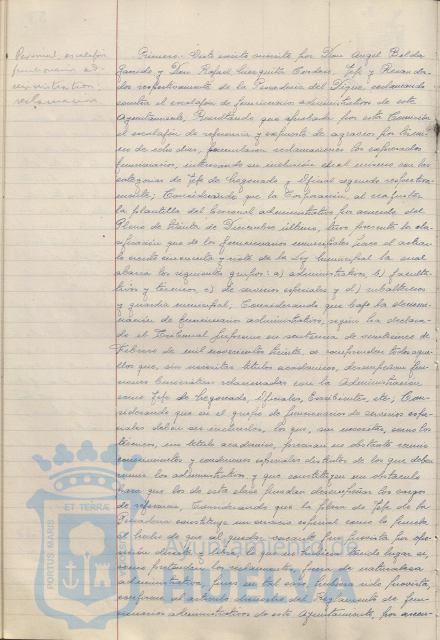 Personal, escalafón
funcionarios ad-
ministrativos
reclamación
Primero: Visto escrito suscrito por Don Angel Belda
y Don Rafael Cordero, Jefe y Recauda-
dor respectivamente de la Recaudación del Dique, reclamando
contra el escalafón de funcionarios administrativos de este
Ayuntamiento, Resultando que aprobado por esta Comisión
el escalafón de referencia y expuesto de agravios por térmi-
no de ocho días, formularon reclamaciones los expresados
funcionarios, interesando su inclusión en el mismo con las
categorías de Jefe de Negociado y Oficial segundo respectiva-
mente; Considerando que la Corporación, al reajustar
la plantilla del Personal administrativo por acuerdo del
Pleno de treinta de Diciembre último, tuvo presente la cla-
sificación que de los funcionarios municipales hace el artícu-
lo ciento cincuenta y siete de la Ley Municipal la cual
abarca los siguientes grupos: a) administrativos, b) faculta-
tivos y técnicos, c) de servicios especiales y d) subalternos
y guardia municipal, Considerando que bajo la denomi-
nación de funcionarios administrativos, según ha declara-
do el Tribunal Supremo en sentencia de veinticinco de
Febrero de mil novecientos treinta, se comprenden todos aque-
llos que, sin necesitar títulos académicos, desempeñan fun-
ciones burocráticas relacionadas con la Administración
como Jefe de Negociado, Oficiales, Escribientes, etc; Con-
siderando que en el grupo de funcionarios de servicios espe-
ciales deben ser incluidos, los que, sin necesitar, como los
técnicos, un título académico, precisan no obstante reunir
conocimientos y condiciones especiales distintos de los que deben
reunir los administrativos y que constituyen un obstáculo
para que los de esta clase puedan desempeñar los cargos
de referencia, Considerando que la plaza de Jefe de la
Recaudación constituye un servicio especial como lo prueba
el hecho de que al quedar vacante fue provista por opo-
sición directa y libre, lo que no hubiera tenido lugar si,
como pretenden los reclamantes, fuera de naturaleza
administrativa, pues en tal caso, hubiera sido provista,
conforme al artículo del Reglamento de fun-
cionarios administrativos de este Ayuntamiento, por ascen-
ET TERRÆ
PORTUS MARIS
Ayuntamiento de
HUELVA